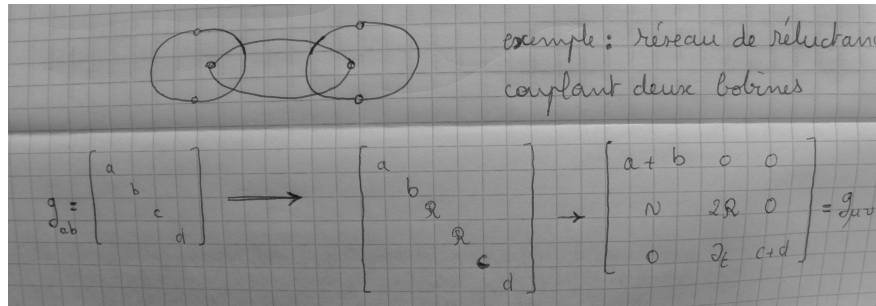 exemple : réseau de réluctan
couplant deux bobines
g_ab = [a b c d] → [a b ℛ ℛ c d] → [a + b 0 0
N 2ℛ 0
0 ∂t c+d] = g_μν